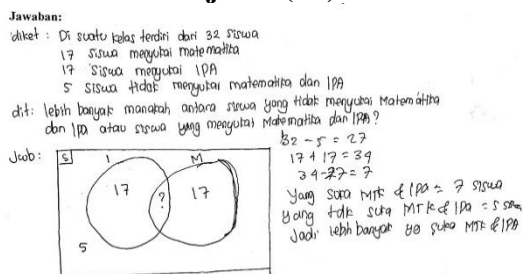 Jawaban:
diket: Di suatu kelas terdiri dari 32 siswa
17 siswa meyukai matematika
17 siswa meyukai IPA
5 siswa tidak menyukai matematika dan IPA
dit: lebih banyak manakah antara siswa yang tidak menyukai Matematika
dan Ipa atau siswa yang menyukai Matematika dan IPA?
Jwb:
S I M
17 ? 17
5
32 - 5 = 27
17 + 17 = 34
34-27 = 7
Yang suka MTK & IPA = 7 siswa
yang tdk suka MTK & IPA = 5 siswa
Jadi lebih banyak yg suka MTK & IPA